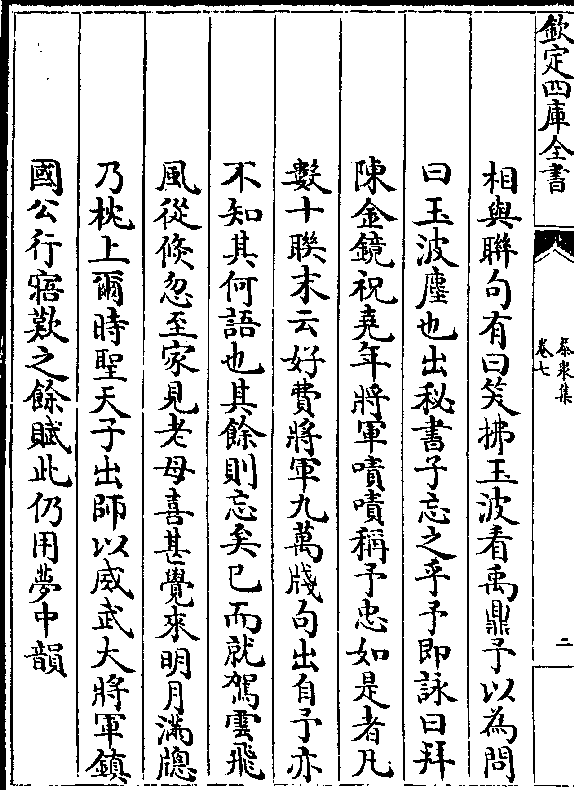 欽定四庫全書
泰泉集
卷七
二
相與聯句有曰笑拂玉波看禹鼎予以為問
曰玉波塵也出秘書子忘之乎予即詠曰拜
陳金鏡祝堯年將軍嘖嘖稱予忠如是者凡
數十聯末云好費將軍九萬牋句出自予亦
不知其何語也其餘則忘矣已而就駕雲飛
風從倏忽至家見老母喜甚覺來明月滿牕
乃枕上爾時聖天子出師以威武大將軍鎮
國公行寤歎之餘賦此仍用夢中韻